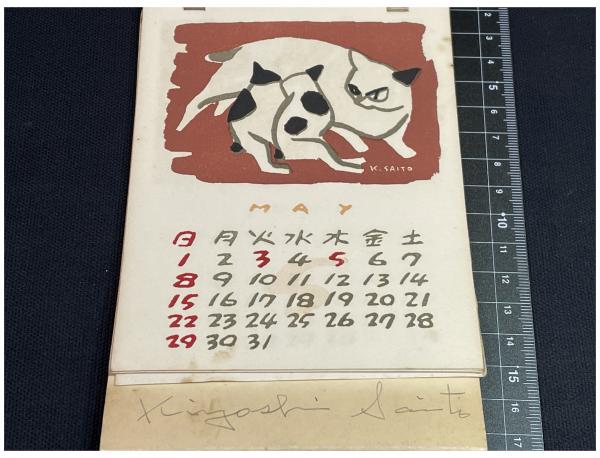 K. SAITO
MAY
日 月 火 水 木 金 土
1 2 3 4 5 6 7
8 9 10 11 12 13 14
15 16 17 18 19 20 21
22 23 24 25 26 27 28
29 30 31
Kiyoshi Saito
2
3
5
4
5
6
+10
7
15
17